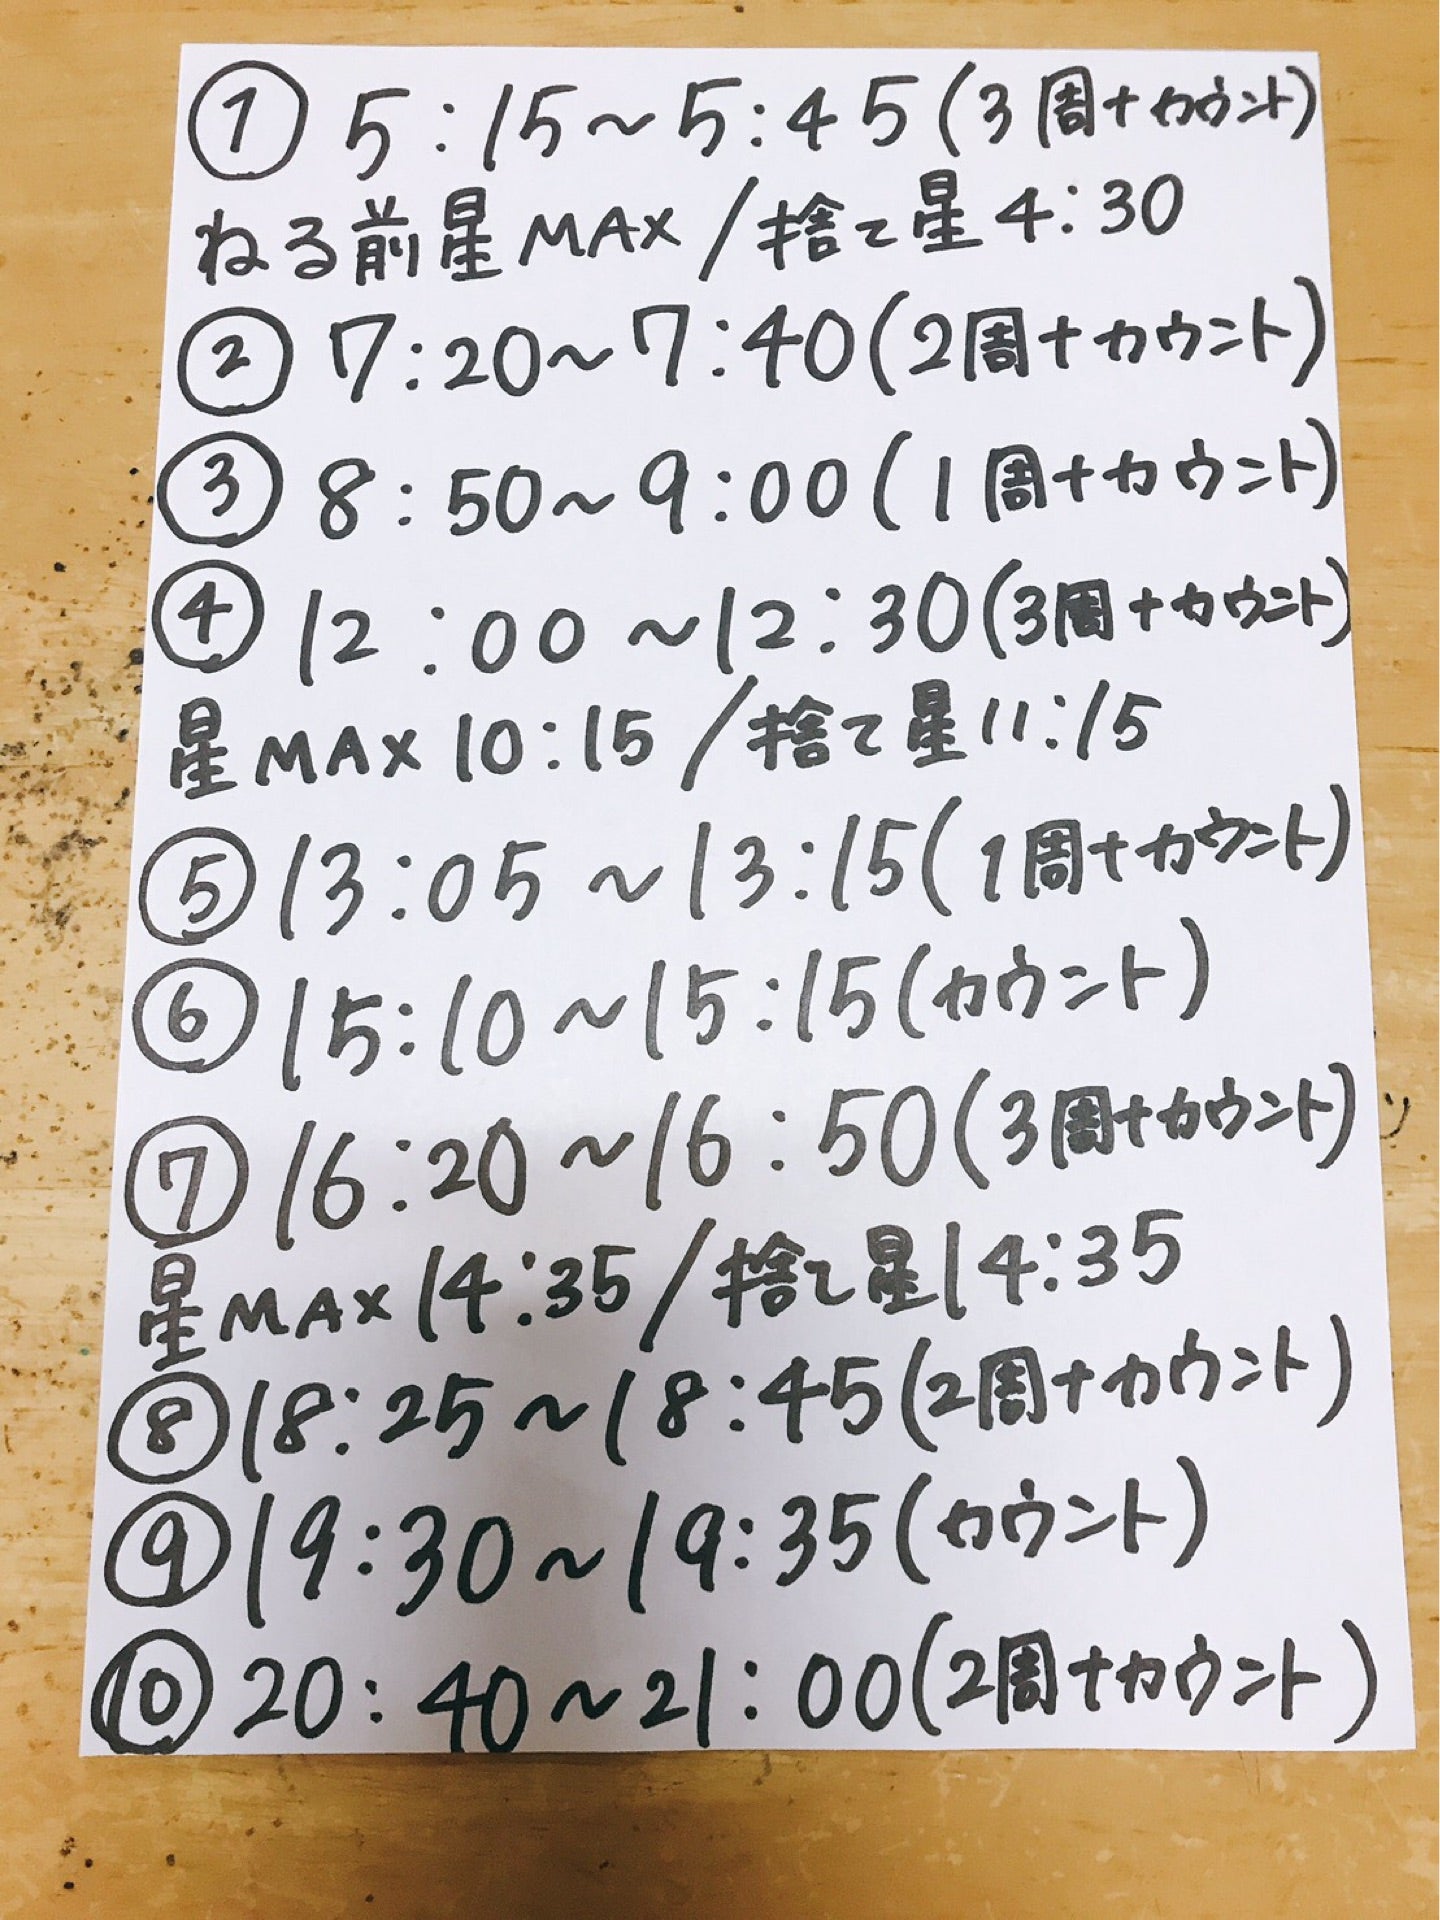 ① 5:15〜5:45(3周+カウント)
ねる前星MAX/捨て星4:30
② 7:20〜7:40(2周+カウント)
③ 8:50〜9:00(1周+カウント)
④ 12:00〜12:30(3周+カウント)
星MAX10:15/捨て星11:15
⑤ 13:05〜13:15(1周+カウント)
⑥ 15:10〜15:15(カウント)
⑦ 16:20〜16:50(3周+カウント)
星MAX14:35/捨て星14:35
⑧ 18:25〜18:45(2周+カウント)
⑨ 19:30〜19:35(カウント)
⑩ 20:40〜21:00(2周+カウント)